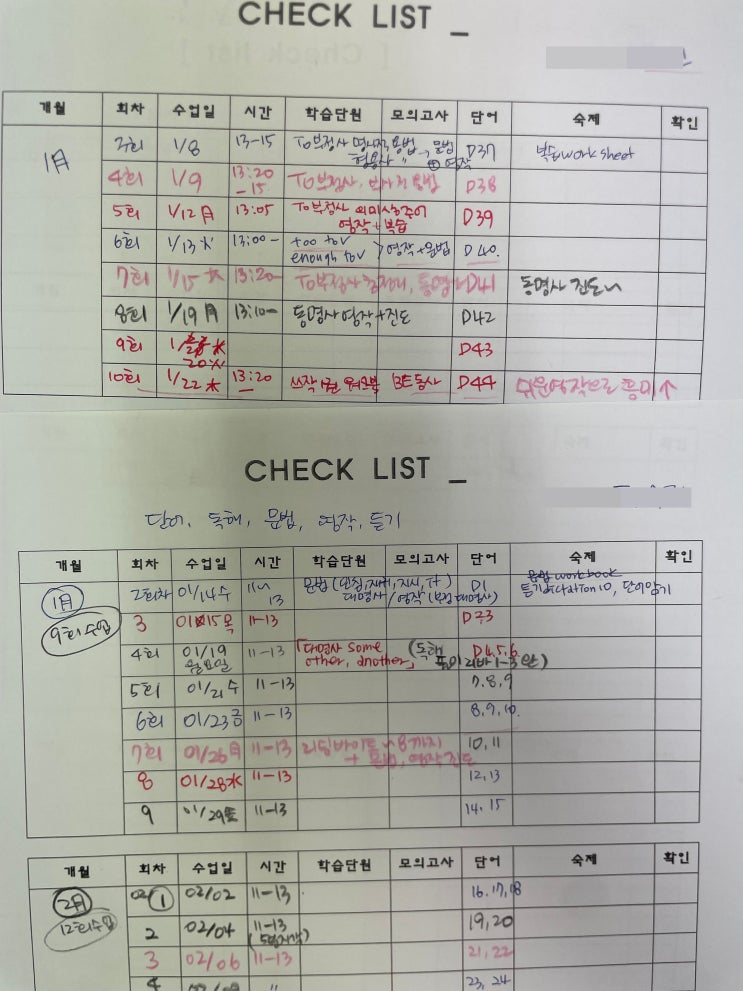 CHECK LIST _
개월 회차 수업일 시간 학습단원 모의고사 단어 숙제 확인
1月
3회 1/8 13-15 To부정사 명사적 용법, 문법 D37 복습 work sheet
형용사 " ⊕ 영작
4회 1/9 13:20 -15 To부정사, 부사적 용법 D38
5회 1/12 月 13:05 To부정사 의미상주어 D39
영작+복습
6회 1/13 火 13:00- too to v 영작+문법 D40.
enough to v
7회 1/15 木 13:20- To부정사 D41 동명사 진도
8회 1/19 月 13:10- 동명사 영작+진도 D42
9회 1/ D43
20
10회 1/22 木 13:20 쓰작 1권 워크북 BE동사 D44 쉬운영작으로 흥미↑
CHECK LIST _
단어, 독해, 문법, 영작, 듣기
개월 회차 수업일 시간 학습단원 모의고사 단어 숙제 확인
1月
9회 수업
2회차 01/14 수 11~13 문법 (인칭, 재귀, 지시, it) D1 문법 workbook
대명사 / 영작 (부정대명사) 듣기 dictation 10, 단어암기
3 01/15 목 11-13 D23
4회 01/19 월요일 11-13 「대명사 some (독해 D4,5,6
other, another」 1-3 完)
5회 01/21 수 11-13 7,8,9
6회 01/23 금 11-13 8,9,10.
7회 01/26 月 11-13 리딩바이트 ~8까지 10,11
+ 문법, 영작진도
8 01/28 水 11-13 12,13
9 01/29 11-13 14.15
개월 회차 수업일 시간 학습단원 모의고사 단어 숙제 확인
2月
12회 수업
02/1 02/02 11-13 16.17,18
2 02/04 11-13 19,20
3 02/06 11-13 21,22
4 " 23, 24